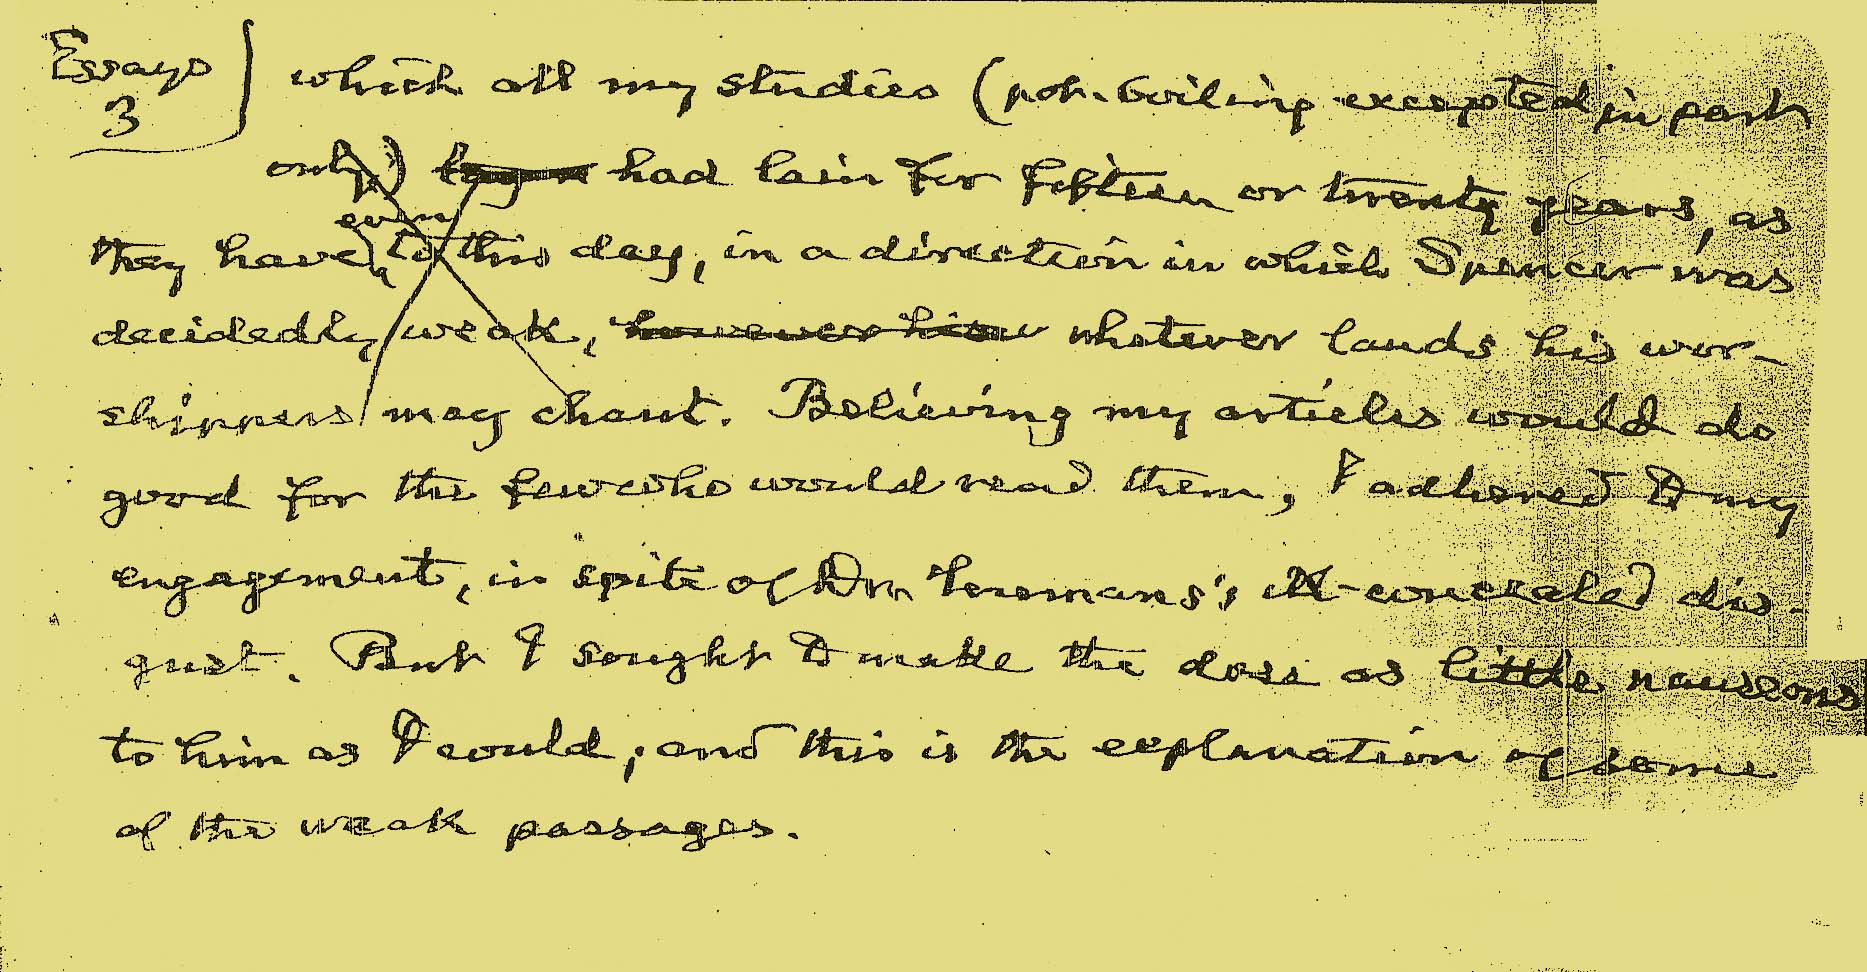 Essays
3
which all my studies (pot-boiling excepted in part
only) had lain for fifteen or twenty years, as
even
they have, to this day, in a direction in which Spencer was
decidedly weak, however his whatever lauds his wor-
shippers may chant. Believing my articles would do
good for the few who would read them, I adhered to my
engagement, in spite of Dr. Youmans's ill-concealed dis-
gust. But I sought to make the dose as little nauseous
to him as I could; and this is the explanation of some
of the weak passages.